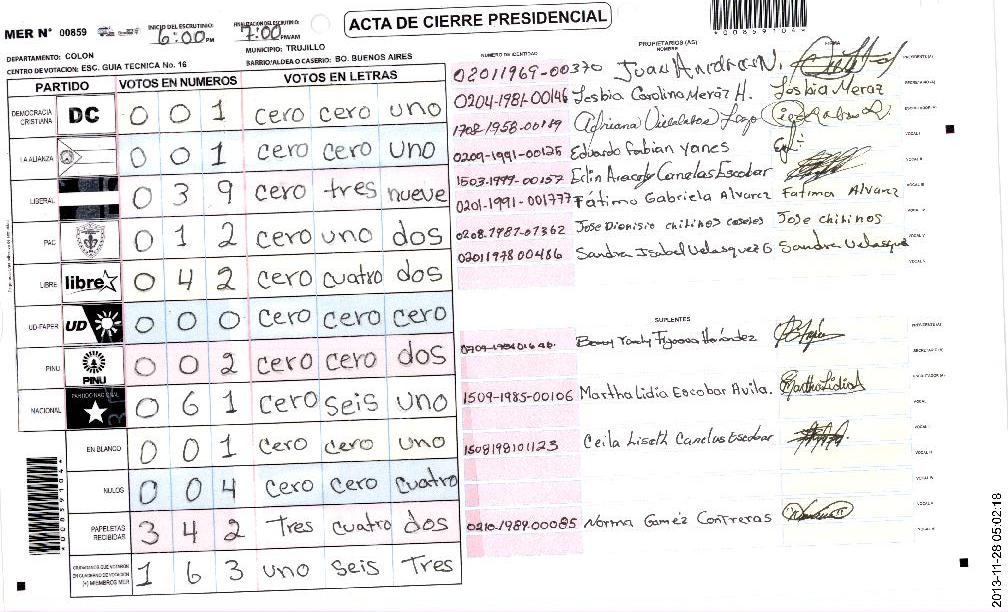 ACTA DE CIERRE PRESIDENCIAL
MER N° 00859
INICIO DEL ESCRUTINIO: 6:00 PM
FINALIZACION DEL ESCRUTINIO: 7:00 PM/AM
*00859104*
DEPARTAMENTO: COLON
MUNICIPIO: TRUJILLO
CENTRO DE VOTACION: ESC. GUIA TECNICA No. 16
BARRIO/ALDEA O CASERIO: BO. BUENOS AIRES
PARTIDO VOTOS EN NUMEROS VOTOS EN LETRAS
DEMOCRACIA CRISTIANA DC 0 0 1 cero cero uno
LA ALIANZA 0 0 1 cero cero uno
LIBERAL 0 3 9 cero tres nueve
PAC 0 1 2 cero uno dos
LIBRE libre 0 4 2 cero cuatro dos
UD-FAPER UD 0 0 0 cero cero cero
PINU PINU 0 0 2 cero cero dos
NACIONAL PARTIDO NACIONAL 0 6 1 cero seis uno
EN BLANCO 0 0 1 cero cero uno
NULOS 0 0 4 cero cero cuatro
PAPELETAS RECIBIDAS 3 4 2 Tres cuatro dos
CIUDADANOS QUE VOTARON EN CUADERNO DE VOTACION (+) MIEMBROS MER 1 6 3 uno seis Tres
NUMERO DE IDENTIDAD PROPIETARIOS (AS) NOMBRE FIRMA
02011969-00370 Juan PRESIDENTE(A)
0204-1981-00146 Lesbia Carolina Meraz H. Lesbia Meraz SECRETARIO(A)
1702-1958-00189 Adriana ESCRUTADOR(A)
0209-1991-00125 Eduardo Fabian Yanes VOCAL I
1503-1999-00157 Edin Canelas Escobar VOCAL II
0201-1991-001777 Fátima Gabriela Alvarez Fatima Alvarez VOCAL III
0208-1987-07362 Jose Dionisio chilinos Jose chilinos
02011978 00486 Sandra Isabel Velasquez G Sandra Velasquez VOCAL V
SUPLENTES
Hernández PRESIDENTE(A)
SECRETARIO(A)
1509-1985-00106 Martha Lidia Escobar Avila. Martha Lidia
1508198101123 Ceila Liseth Canelas Escobar
0210-1989-00085 Norma Gamez Contreras
2013-11-28 05:02:18